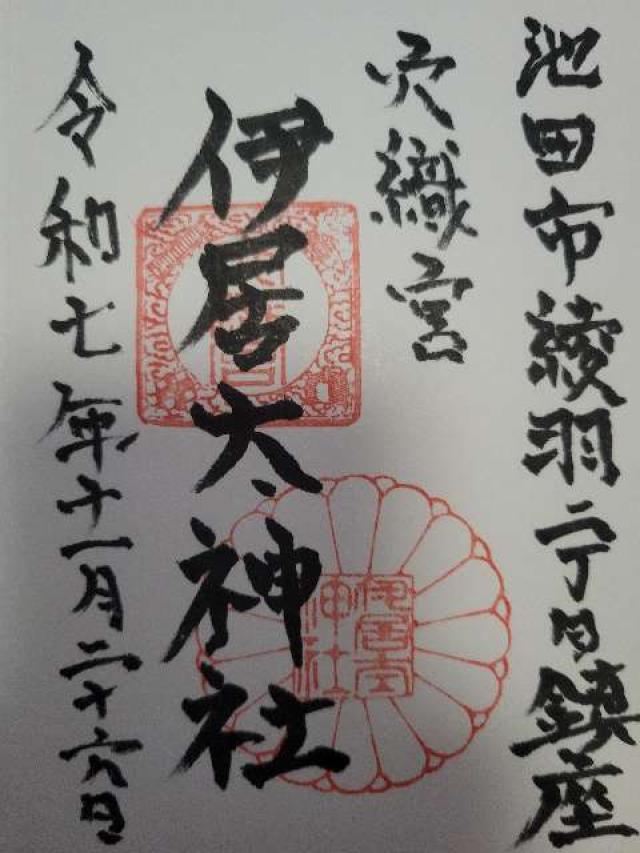 池田市綾羽二丁目鎮座
穴織宮
伊居太神社
令和七年十一月二十六日
伊居太
神社